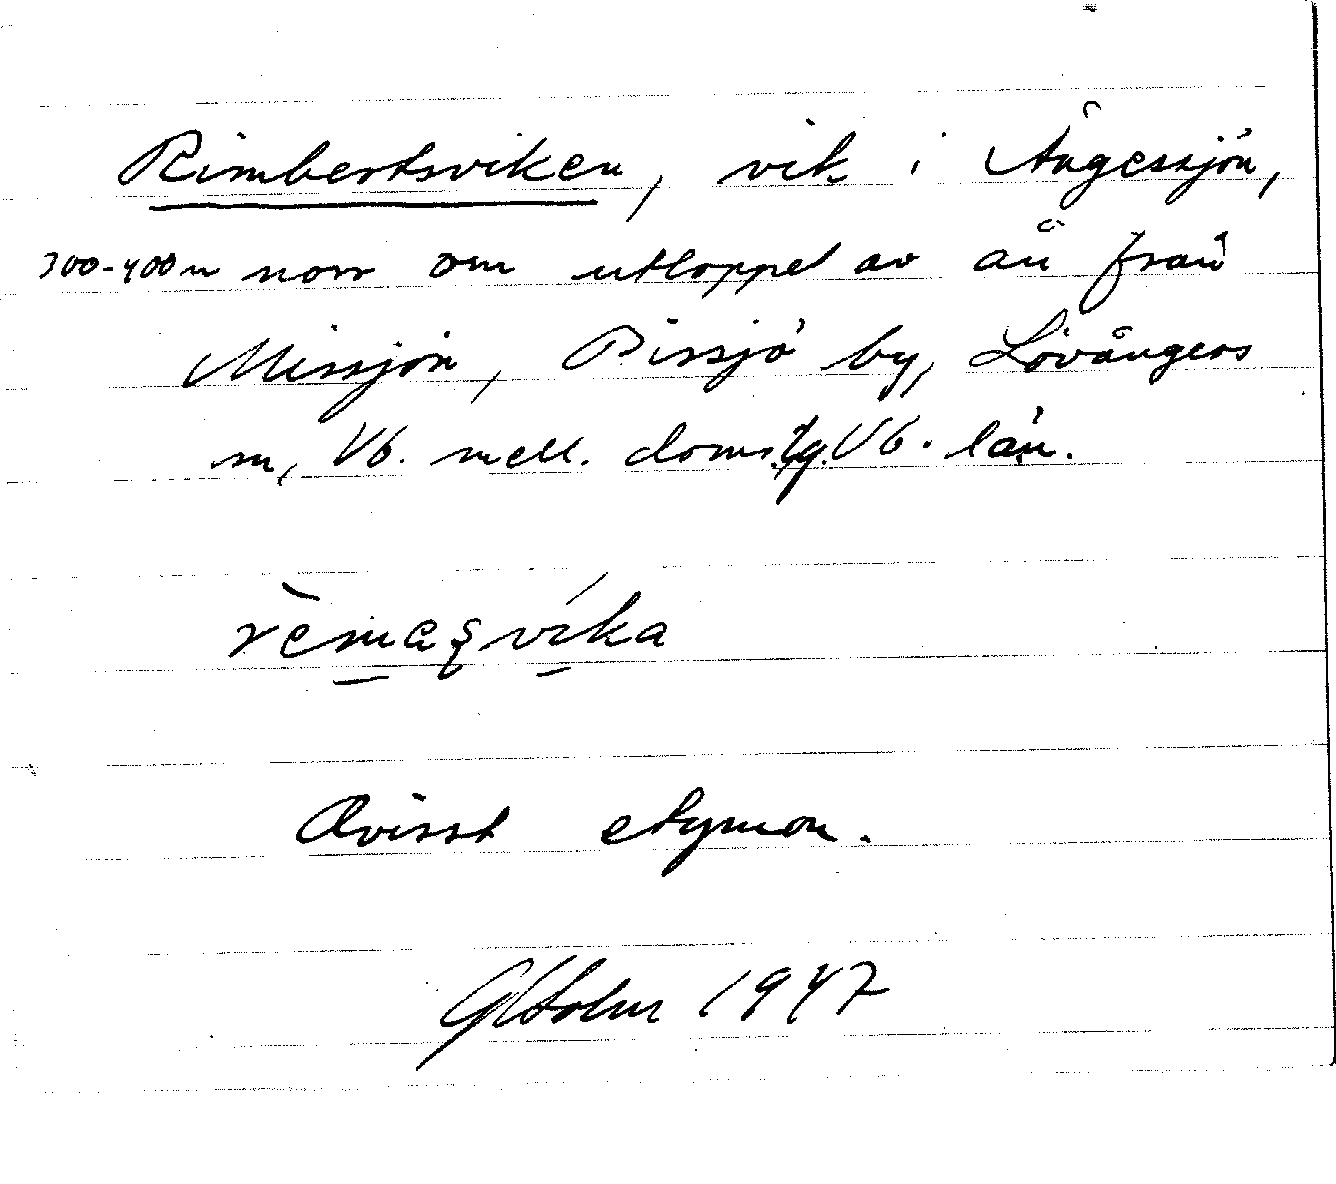 Rimbertsviken, vik i Ångessjön,
300-400 m norr om utloppet av ån från
Missjön, Bissjö by, Lövångers
sn, Vb. mell. doms.tg. Vb. län.
rèmasvíka
Ovisst etymon.
G Holm 1947